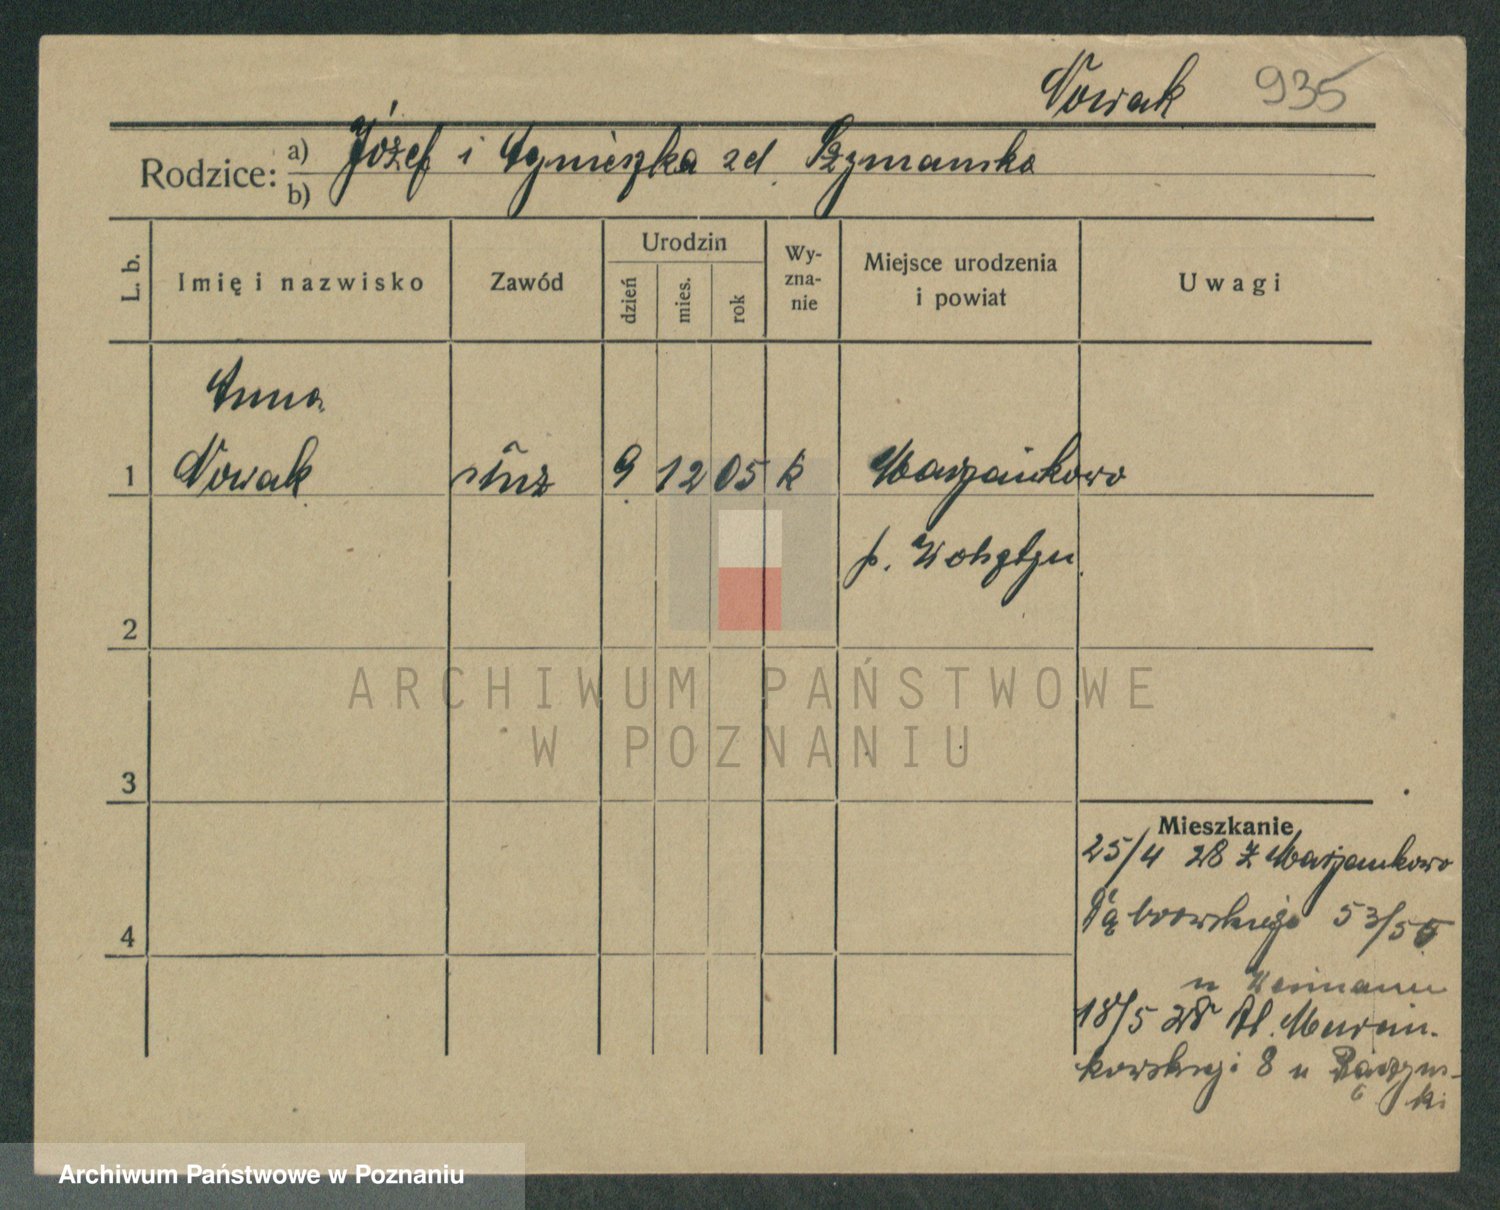 Nowak 935
Rodzice: a) Józef i Agnieszka zd. Szymanska
b)
L. b. Imię i nazwisko Zawód Urodzin dzień mies. rok Wyznanie Miejsce urodzenia i powiat Uwagi
Anna
1 Nowak służ 9 12 05 k Marjankowo
p. Wolsztyn
2
ARCHIWUM PAŃSTWOWE
W POZNANIU
3
Mieszkanie
25/4 28 z Marjankowo
Dąbrowskiego 53/55
4
u
18/5 28 Al. Marcin-
kowskiego 8 u
ki
Archiwum Państwowe w Poznaniu